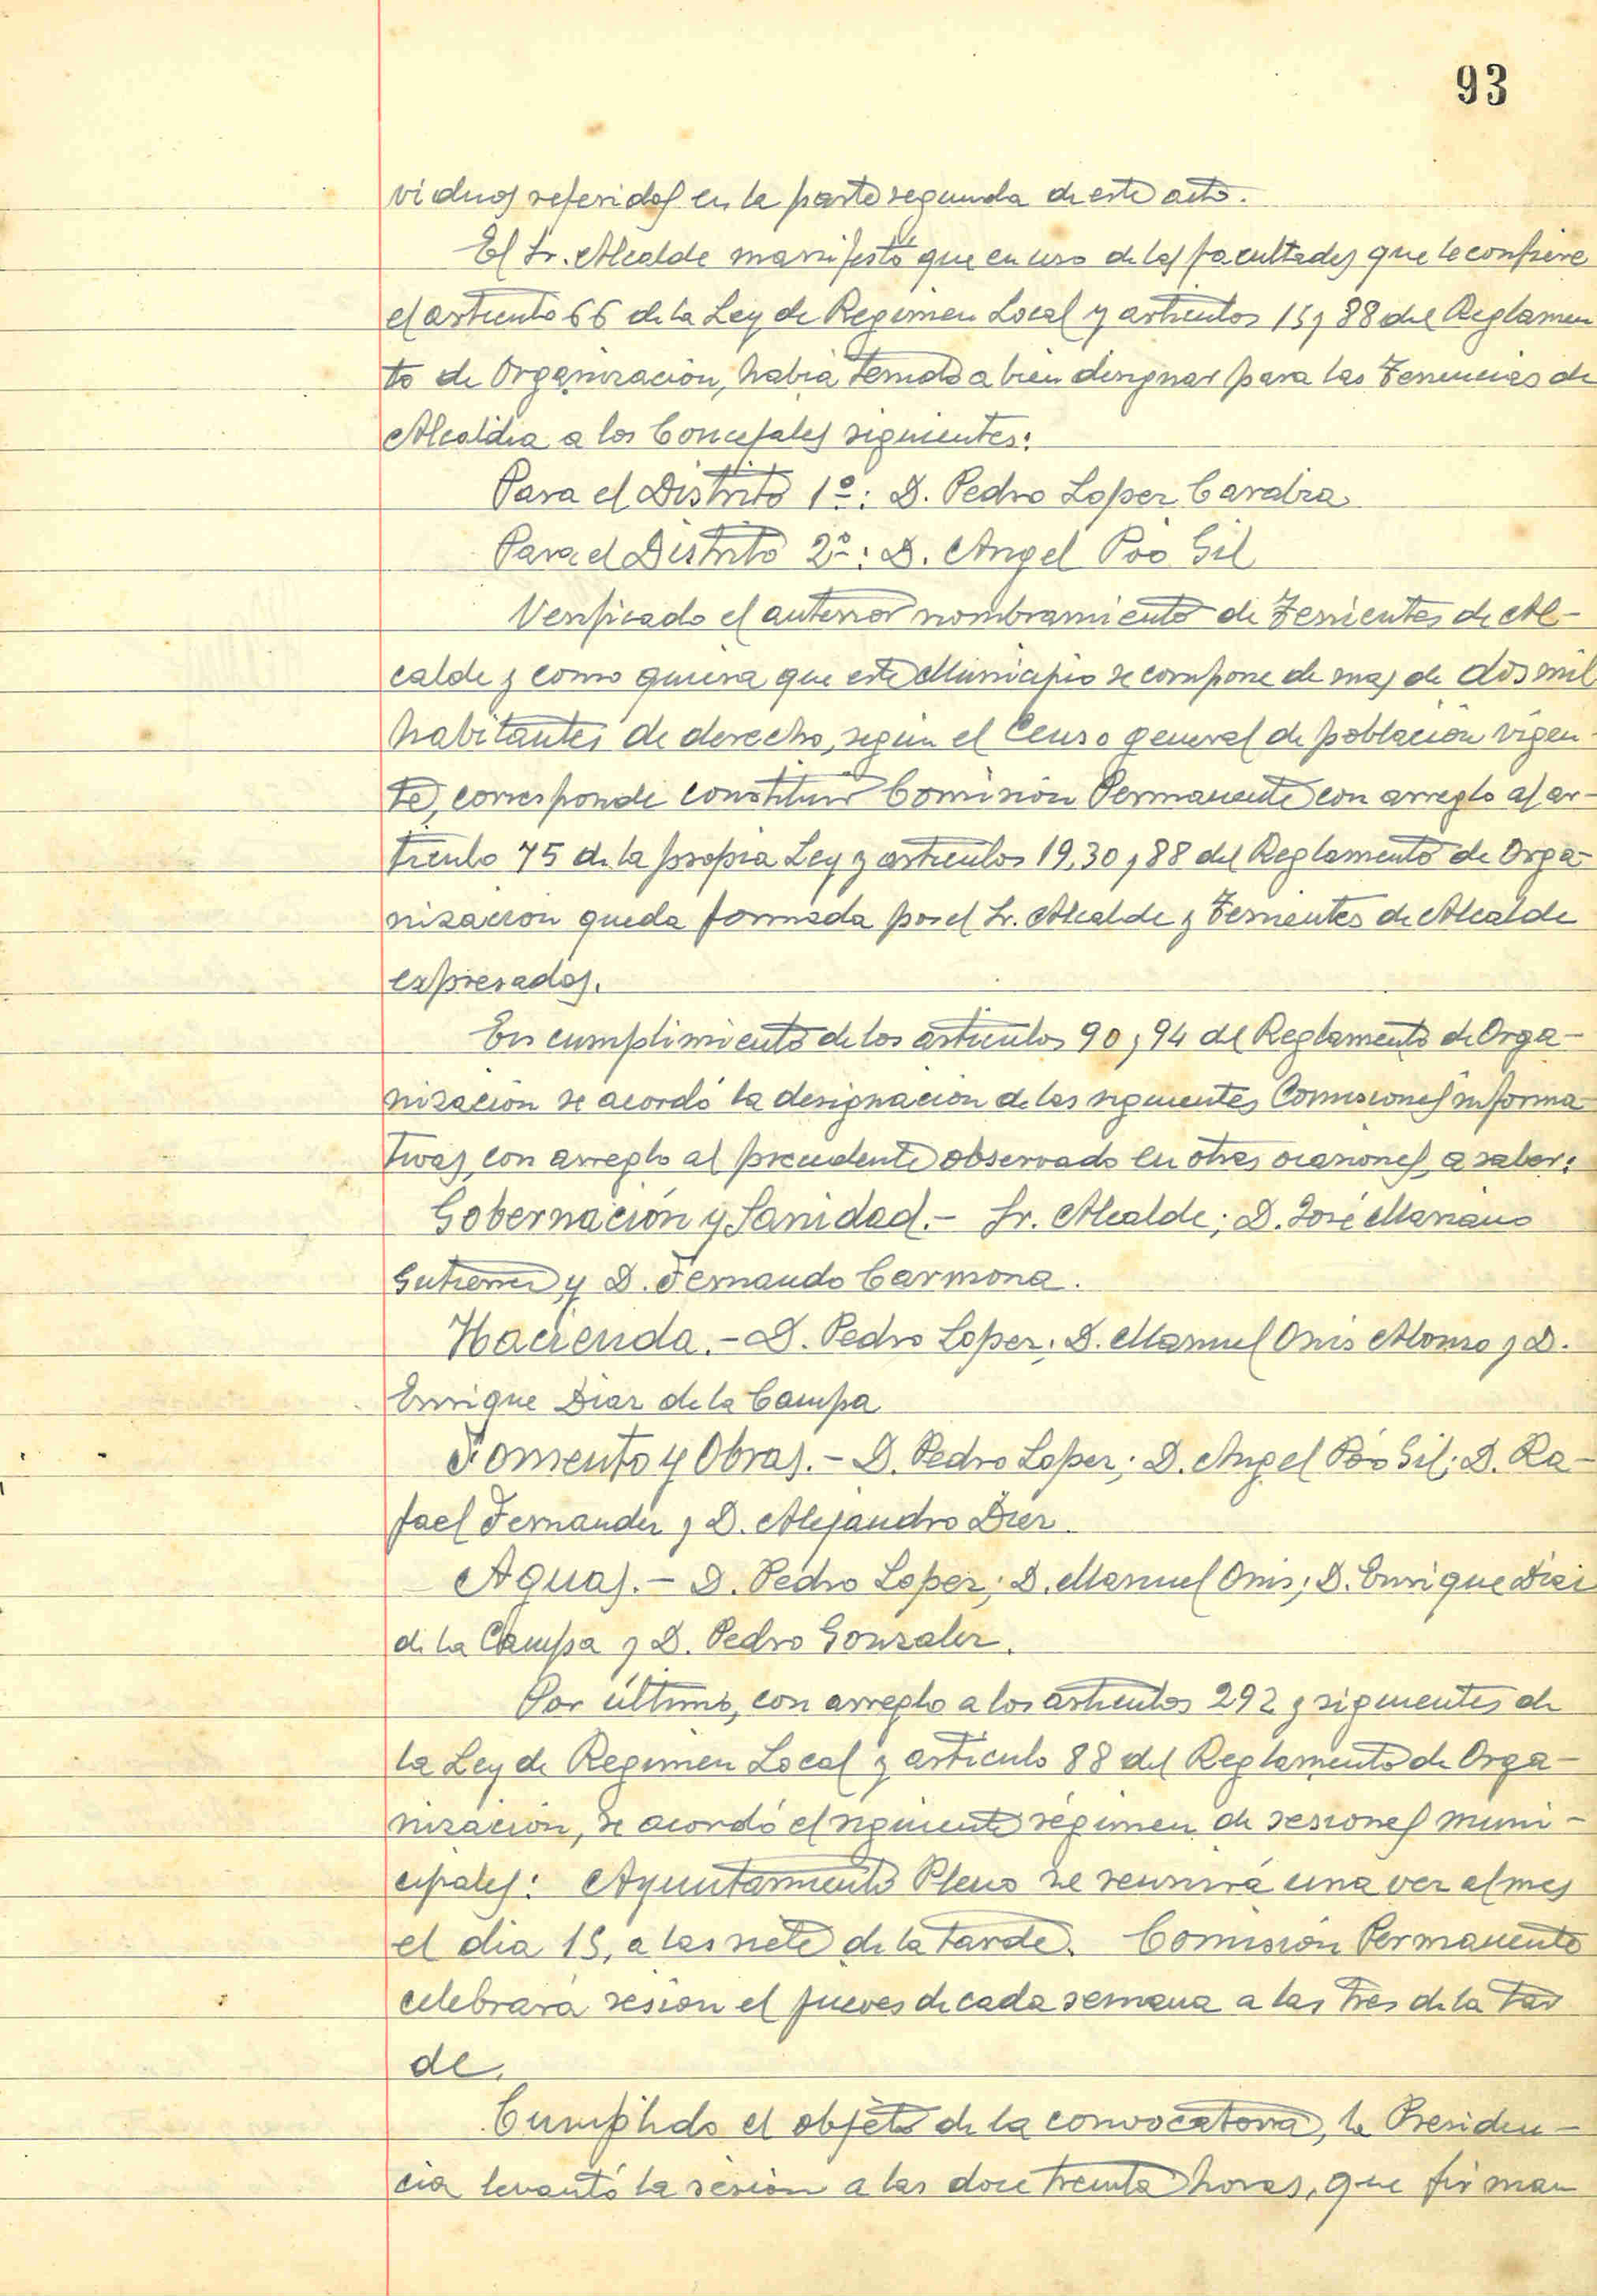 93
viduos referidos en la parte segunda de este acto.
El Sr. Alcalde manifestó que en uso de las facultades que le confiere
el artículo 66 de la Ley de Regimen Local y artículos 15 y 88 del Reglamen
to de Organización, había tenido a bien designar para las Tenencias de
Alcaldía a los Concejales siguientes:
Para el Distrito 1º: D. Pedro Lopez Carabza
Para el Distrito 2º: D. Angel Poo Gil
Verificado el anterior nombramiento de Tenientes de Al-
calde y como quiera que este Municipio se compone de mas de dos mil
habitantes de derecho, según el Censo general de población vigen
te, corresponde constituir Comisión Permanente con arreglo al ar-
tículo 75 de la propia Ley y artículos 19, 30 y 88 del Reglamento de Orga-
nización queda formada por el Sr. Alcalde y Tenientes de Alcalde
expresados.
En cumplimiento de los artículos 90 y 94 del Reglamento de Orga-
nización se acordó la designación de las siguientes Comisiones informa-
tivas, con arreglo al precedente observado en otras ocasiones, a saber:
Gobernación y Sanidad.- Sr. Alcalde; D. José Mariano
Gutierrez y D. Fernando Carmona.
Hacienda.- D. Pedro Lopez; D. Manuel Onis Alonso y D.
Enrique Diaz de la Campa
Fomento y Obras.- D. Pedro Lopez; D. Angel Póo Gil; D. Ra-
fael Fernandez y D. Alejandro Diez
Aguas.- D. Pedro Lopez; D. Manuel Onis; D. Enrique Diaz
de la Campa y D. Pedro Gonzalez.
Por último, con arreglo a los artículos 292 y siguientes de
la Ley de Regimen Local y artículo 88 del Reglamento de Orga-
nización, se acordó el siguiente régimen de sesiones muni-
cipales: Ayuntamiento Pleno se reunirá una vez al mes
el día 15, a las siete de la tarde. Comisión Permanente
celebrará sesión el jueves de cada semana a las tres de la tar
de.
Cumplido el objeto de la convocatoria, la Presiden-
cia levantó la sesión a las doce treinta horas, que firman